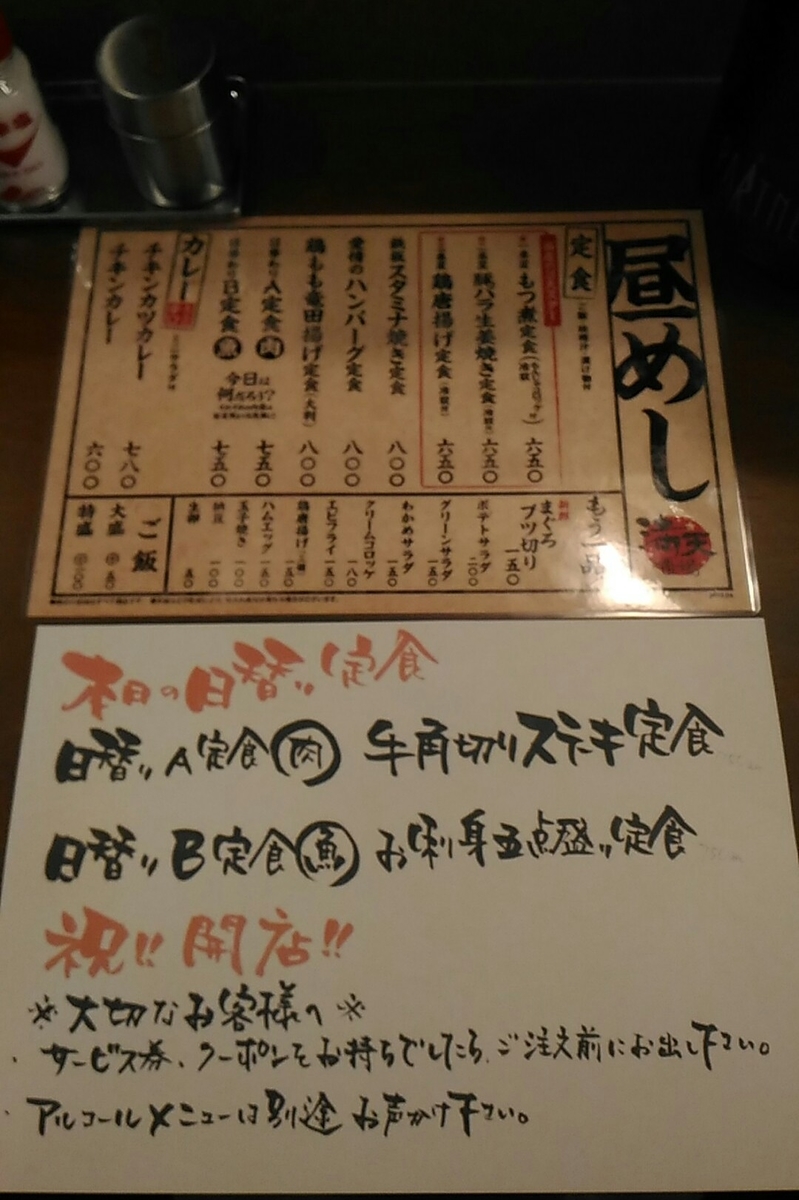 昼めし
満天
定食
ご飯・味噌汁・漬け物付
もつ煮定食
六五〇
豚バラ生姜焼き定食(冷奴付)
六五〇
鶏唐揚げ定食(冷奴付)
六五〇
鉄板スタミナ焼き定食
八〇〇
愛情のハンバーグ定食
八〇〇
鶏もも竜田揚げ定食(大判)
八〇〇
日替わりA定食 肉
七五〇
日替わりB定食 魚
七五〇
今日は何だろう?
カレー
ミニサラダ付
チキンカツカレー
七八〇
チキンカレー
六〇〇
もう一品
まぐろブツ切り
一五〇
ポテトサラダ
二〇〇
グリーンサラダ
一五〇
わかめサラダ
一五〇
クリームコロッケ
一八〇
エビフライ
一五〇
鶏唐揚げ
一五〇
ハムエッグ
一五〇
玉子焼き
一〇〇
納豆
一〇〇
生卵
五〇
ご飯
大盛 五〇
特盛 一〇〇
本日の日替り定食
日替りA定食 肉 牛角切りステーキ定食
日替りB定食 魚 お刺身五点盛り定食
祝!! 開店!!
※大切なお客様へ※
・サービス券、クーポンをお持ちでしたら、ご注文前にお出し下さい。
・アルコールメニューは別途お声かけ下さい。